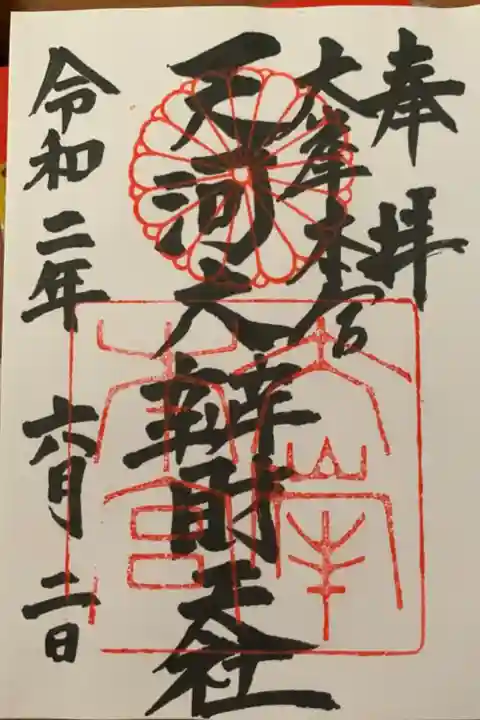 奉拝
大峯本宮
天河大辨財天社
令和二年 六月 二日
大峯
本宮